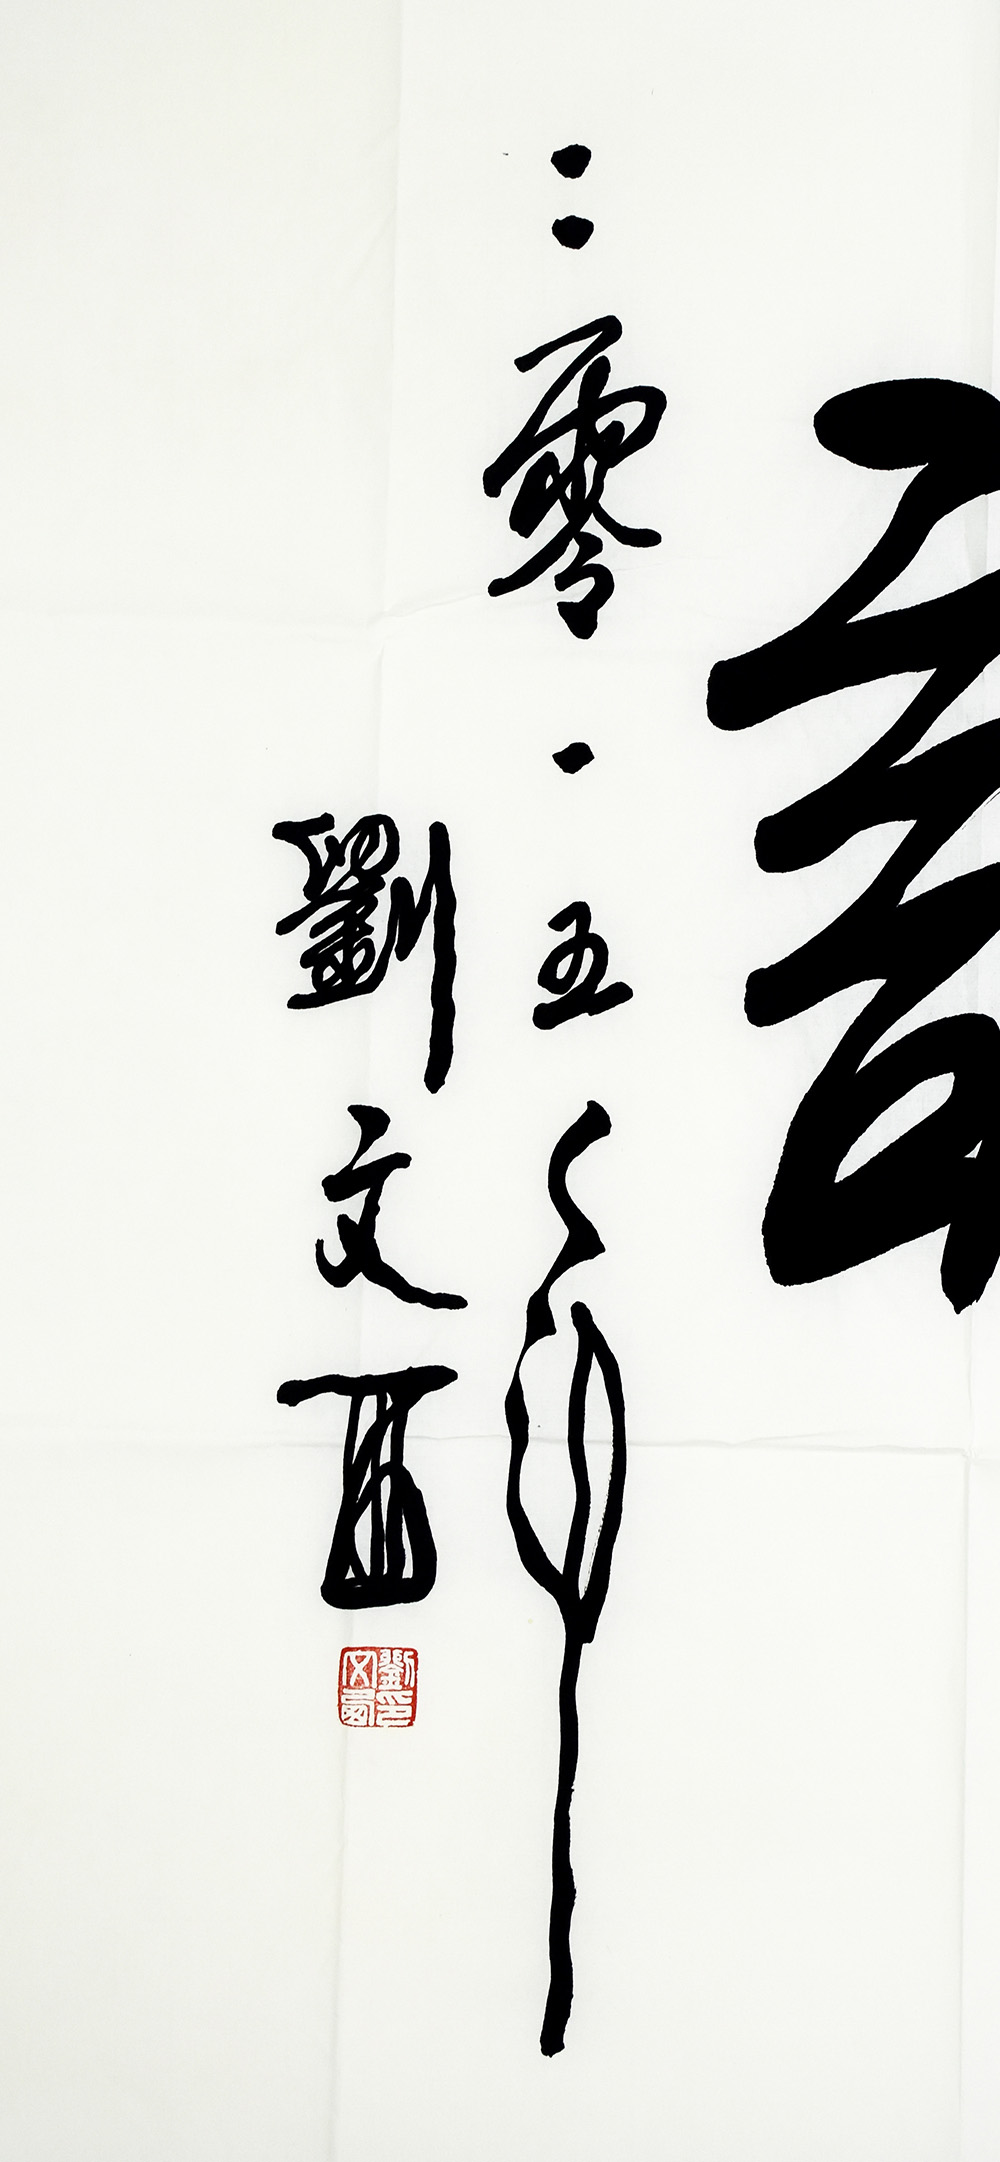 二零一五年
劉文西
劉印
文西